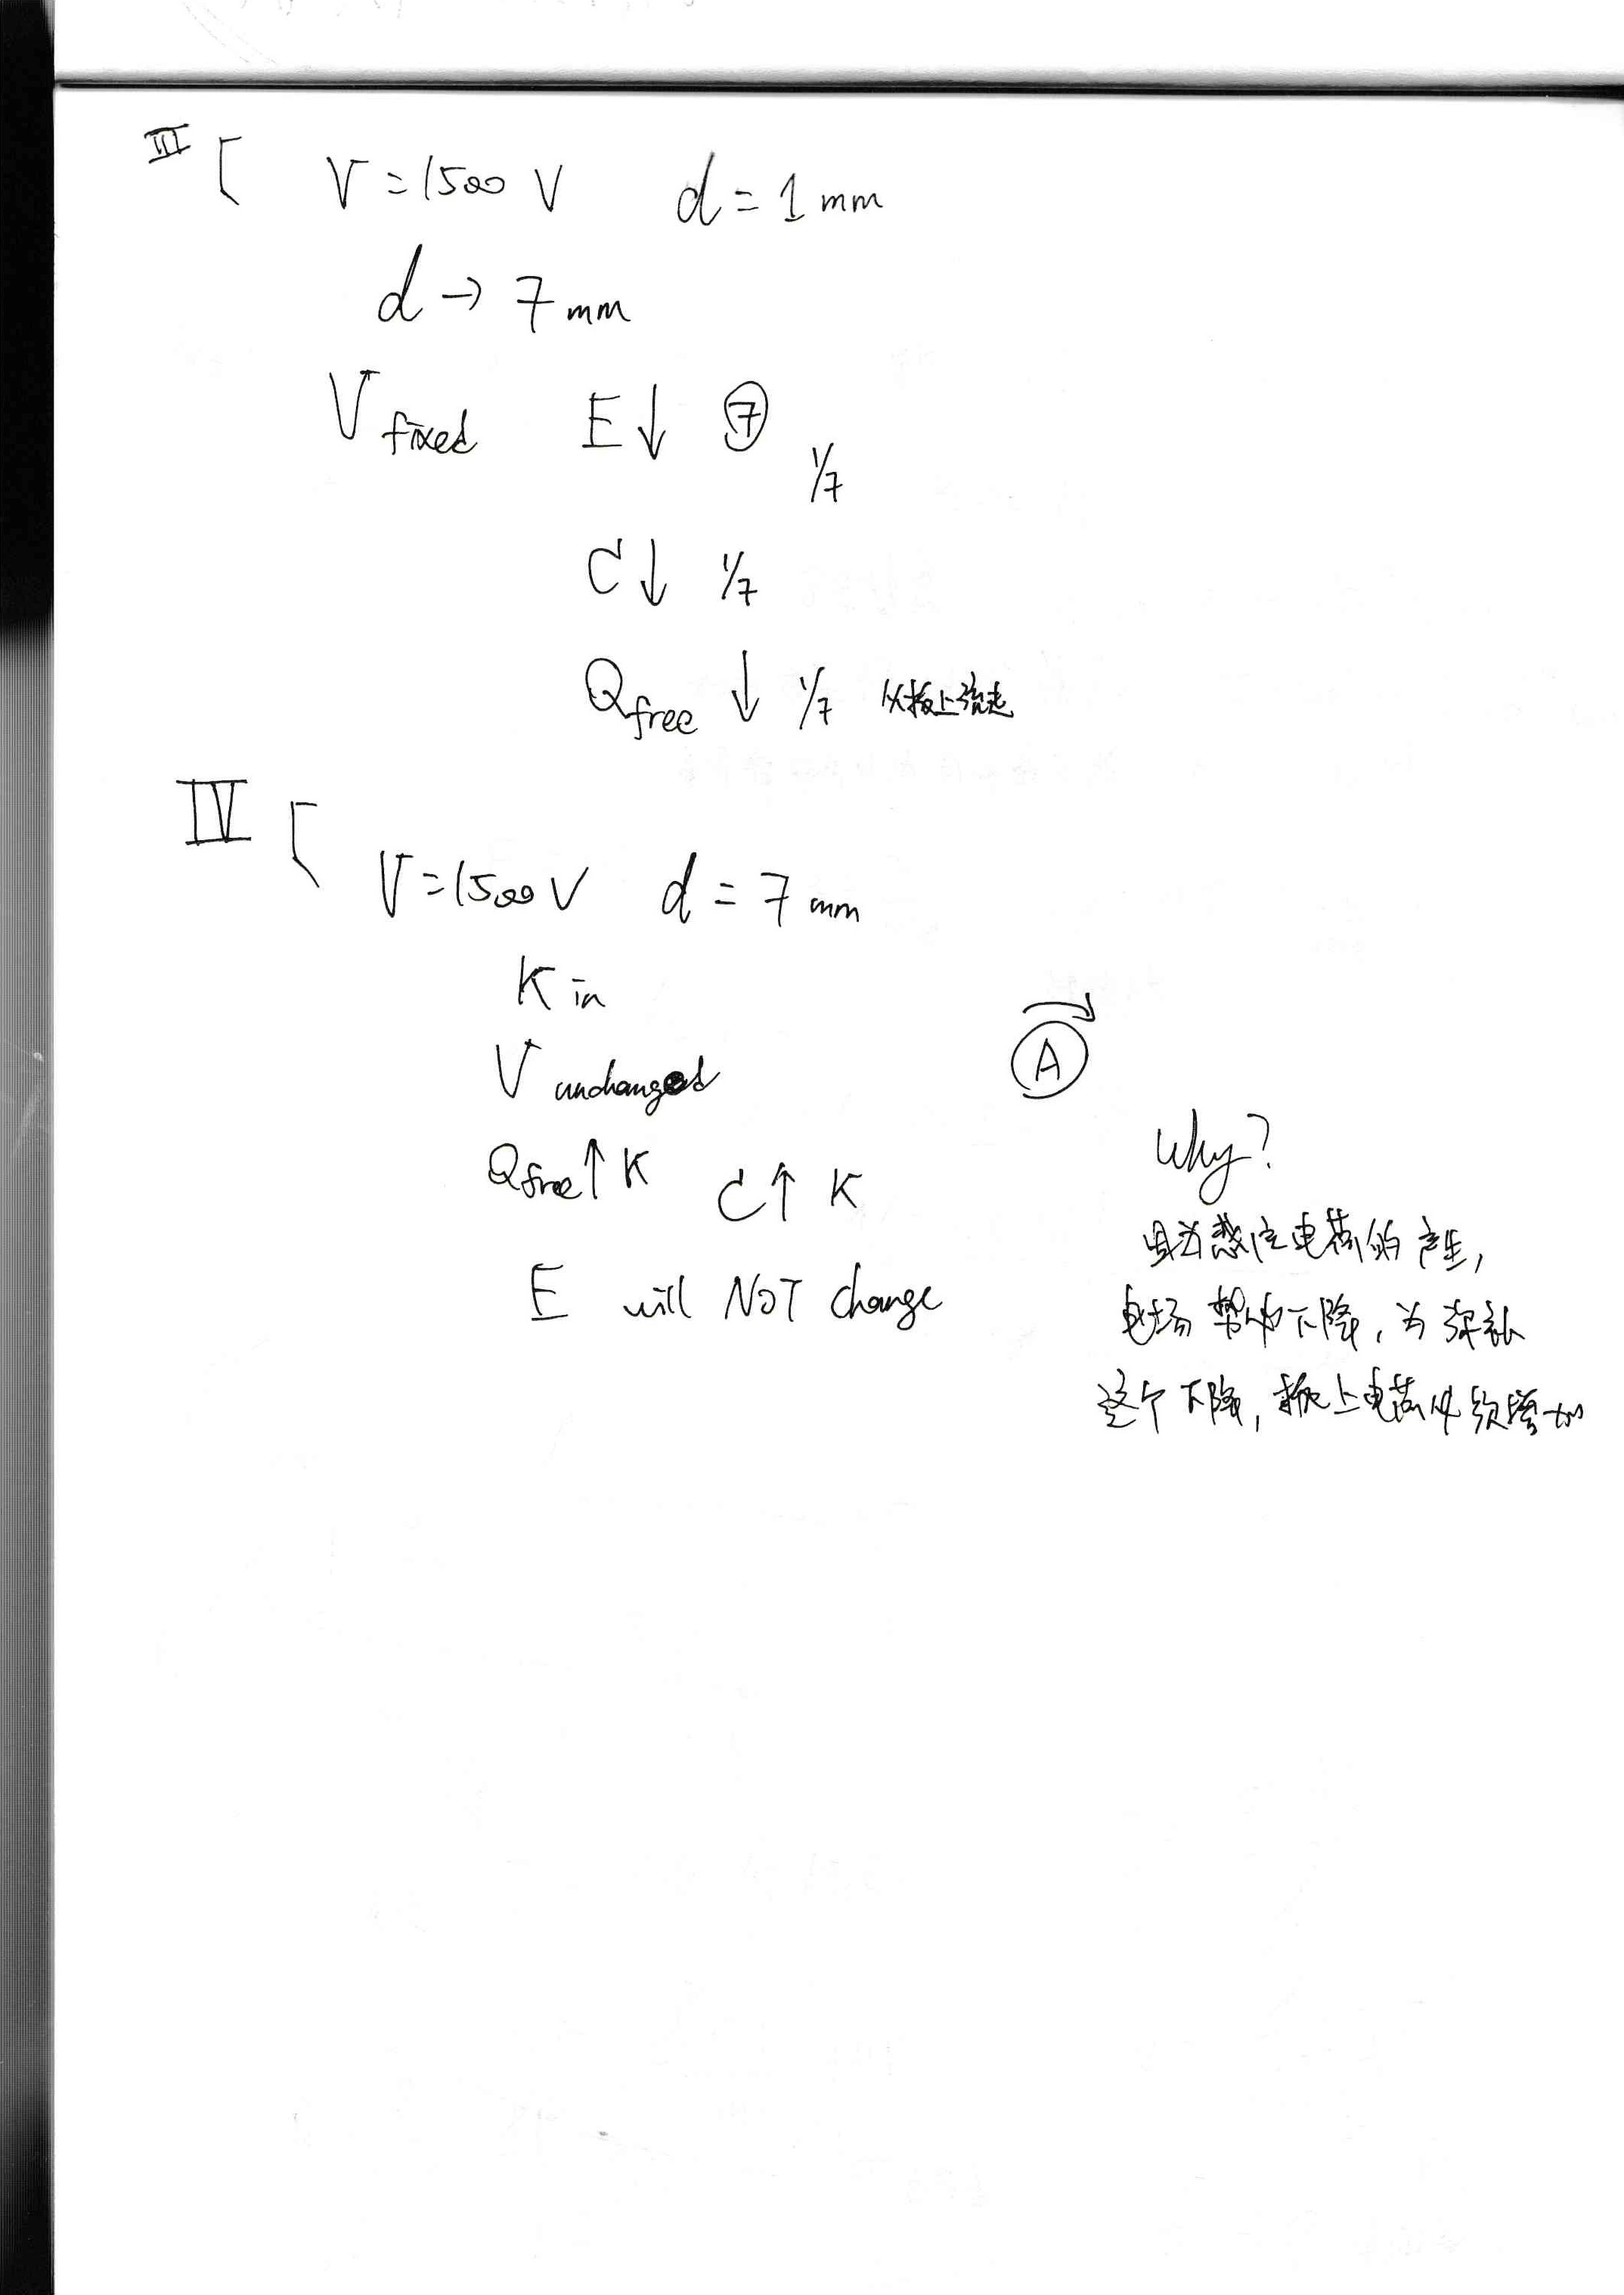 III [ V = 1500 V d = 1 mm
d → 7 mm
V fixed E ↓ ⑦ 1/7
C ↓ 1/7
Qfree ↓ 1/7 从板上流走
IV [ V = 1500 V d = 7 mm
K in
V unchanged
Qfree ↑ K C ↑ K
E will NOT change
Ⓐ
Why?
因为感应电荷的产生,
电场势必下降, 为弥补
这个下降, 板上电荷必须增加